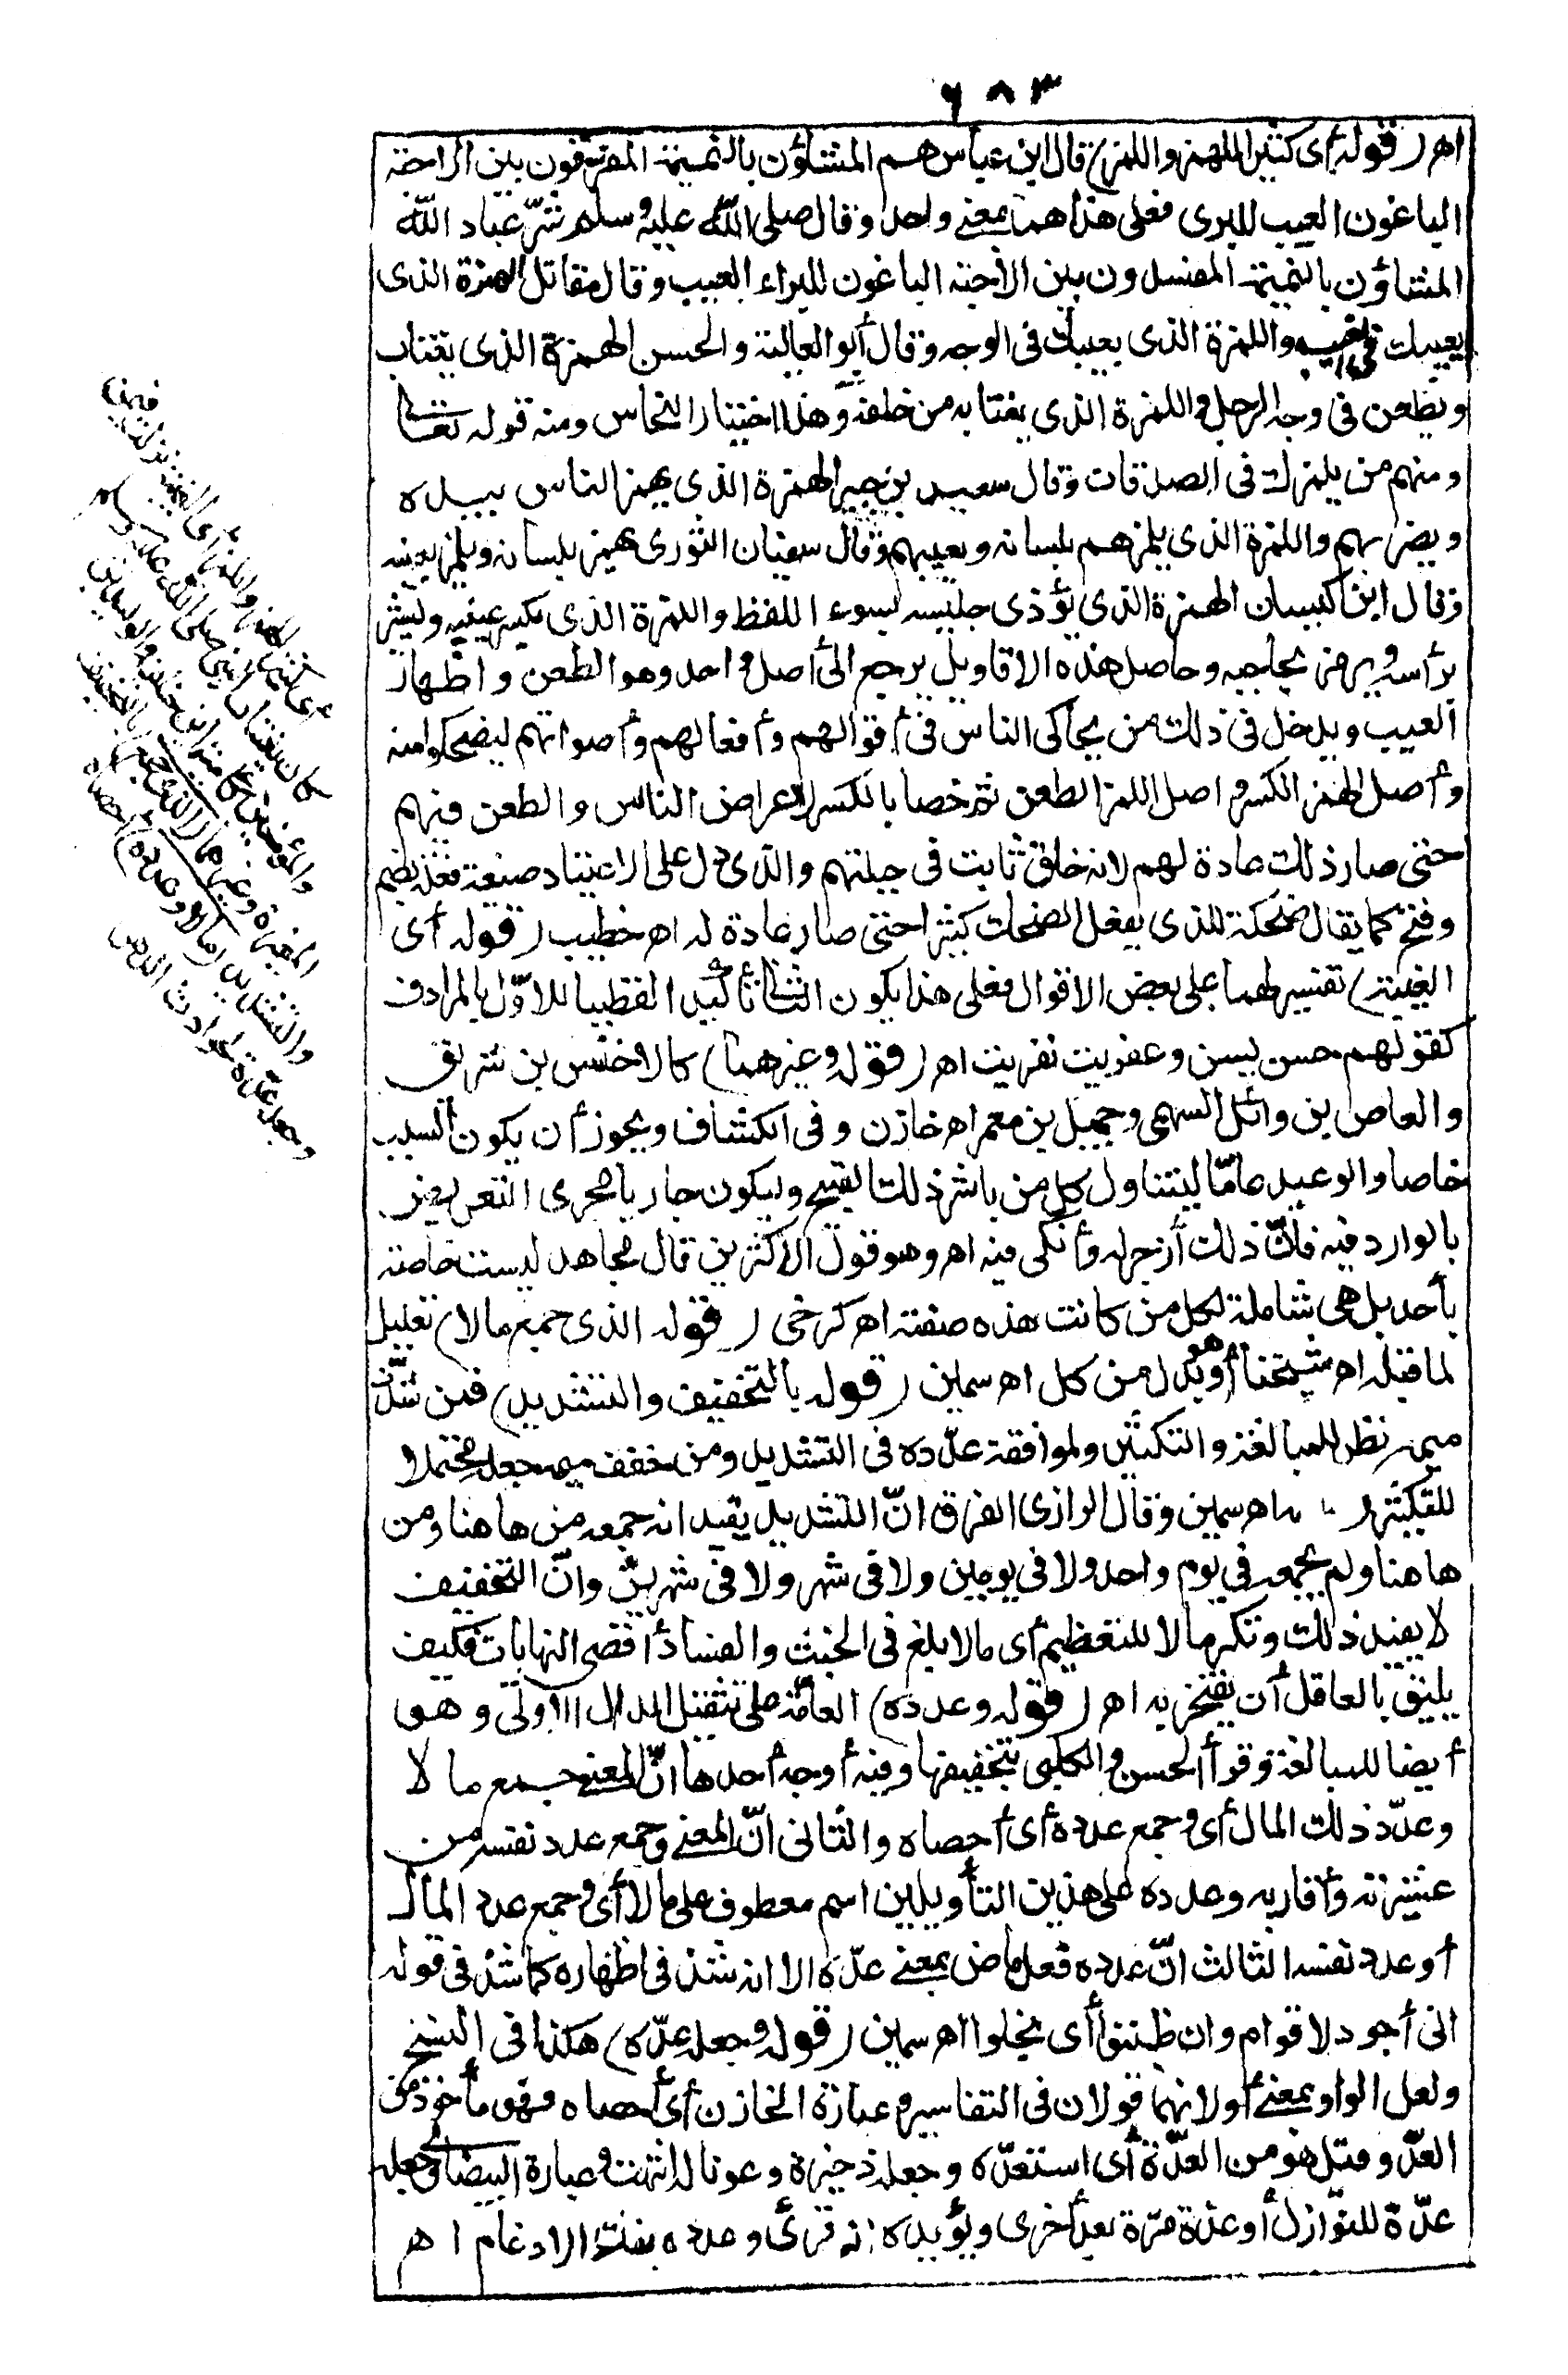 ٦٨٣
اهـ (قوله أى كثير الهمز واللمز) قال ابن عباس هم المشاؤن بالنميمة المفرقون بين الاحبة
الباغون العيب للبرى فعلى هذا هما بمعنى واحد وقال صلى الله عليه وسلم شرّ عباد الله
المشاؤن بالنميمة المفسدون بين الأحبة الباغون للبراء العيب وقال مقاتل الهمزة الذى
يعيبك فى الغيب واللمزة الذى يعيبك فى الوجه وقال أبو العالية والحسن الهمزة الذى يغتاب
ويطعن فى وجه الرجل واللمزة الذى يغتابه من خلفه وهذا اختيار النحاس ومنه قوله تعالى
ومنهم من يلمزك فى الصدقات وقال سعيد بن جبير الهمزة الذى يهمز الناس بيده
ويضربهم واللمزة الذى يلمزهم بلسانه ويعيبهم وقال سفيان الثورى يهمز بلسانه ويلمز بعينه
وقال ابن كيسان الهمزة الذى يؤذى جليسه بسوء اللفظ واللمزة الذى يكسر عينيه ويشير
برأسه ويرمز بحاجبه وحاصل هذه الاقاويل يرجع الى أصل واحد وهو الطعن واظهار
العيب ويدخل فى ذلك من يحاكى الناس فى أقوالهم وأفعالهم وأصواتهم ليضحكوا منه
وأصل الهمز الكسر وأصل اللمز الطعن ثم خصا بالكسر لاعراض الناس والطعن فيهم
حتى صار ذلك عادة لهم لانه خلق ثابت فى جبلتهم والذى دل على الاعتياد صيغة فعلة بضم
وفتح كما يقال ضحكة للذى يفعل الضحك كثيرا حتى صار عادة له اهـ خطيب (قوله أى
الغيبة) تفسير لهما على بعض الاقوال فعلى هذا يكون الثانى تأكيدا لفظيا للاوّل بالمرادف
كقولهم حسن بسن وعفريت نفريت اهـ (قوله وغيرهما) كالاخنس بن شريق
والعاص بن وائل السهمى وجميل بن معمر اهـ خازن وفى الكشاف ويجوز أن يكون السبب
خاصا والوعيد عامّا ليتناول كل من باشر ذلك القبيح وليكون جاريا مجرى التعريض
بالوارد فيه فانّ ذلك أزجر له وأنكى فيه اهـ وهو قول الاكثرين قال مجاهد ليست خاصة
بأحد بل هى شاملة لكل من كانت هذه صفته اهـ كرخى (قوله الذى جمع مالا) تعليل
لما قبله اهـ شيخنا أو هو بدل من كل اهـ سمين (قوله بالتخفيف والتشديد) فمن شدّد
ميمه نظر للمبالغة والتكثير ولموافقة عدّده فى التشديد ومن خفف ميمه جعله محتملا
للتكثير اهـ سمين وقال الرازى الفرق انّ التشديد يفيد انه جمعه من هاهنا ومن
هاهنا ولم يجمعه فى يوم واحد ولا فى يومين ولا فى شهر ولا فى شهرين وانّ التخفيف
لا يفيد ذلك ونكر مالا للتعظيم أى مالا بلغ فى الخبث والفساد أقصى النهايات فكيف
يليق بالعاقل أن يفتخر به اهـ (قوله وعدده) العامّة على تثقيل الدال الاولى وهو
أيضا للمبالغة وقرأ الحسن والكلبى بتخفيفها وفيه أوجه أحدها انّ المعنى جمع مالا
وعدّد ذلك المال أى وجمع عدده أى أحصاه والثانى انّ المعنى وجمع عدد نفسه من
عشيرته وأقاربه وعدده على هذين التأويلين اسم معطوف على مالا أى وجمع عدد المال
أو عدد نفسه الثالث انّ عدده فعل ماض بمعنى عدّه الا انه شذ فى اظهاره كما شذ فى قوله
انى أجود لاقوام وان ظننوا أى بخلوا اهـ سمين (قوله وجعله عدّة) هكذا فى النسخ
ولعل الواو بمعنى أو لانهما قولان فى التفاسير وعبارة الخازن أى أحصاه فهو مأخوذ من
العدّ وقيل هو من العدّة أى استعدّه وجعله ذخيرة وعونا له انتهت وعبارة البيضاوى وجعله
عدّة للنوازل أو عدّه مرّة بعد أخرى ويؤيده انه قرئ وعدده بفك الادغام اهـ
أى كثير الهمز واللمز أى الغيبة نزلت فيمن
كان يغتاب النبى صلى الله عليه وسلم
والمؤمنين كأمية ابن خلف والوليد بن
المغيرة وغيرهما (الذى جمع) بالتخفيف
والتشديد (مالا وعدده) أحصاه
وجعله عدّة لحوادث الدهر